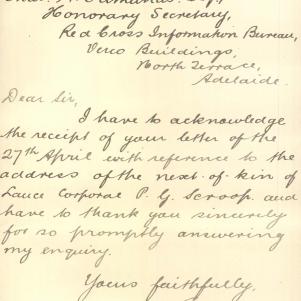 Honorary Secretary,
Red Cross Information Bureau,
Verco Buildings,
North Terrace,
Adelaide.
Dear Sir,
I have to acknowledge
the receipt of your letter of the
27th April with reference to the
address of the next-of-kin of
Lance Corporal P. G. Scroop. and
have to thank you sincerely
for so promptly answering
my enquiry.
Yours faithfully,